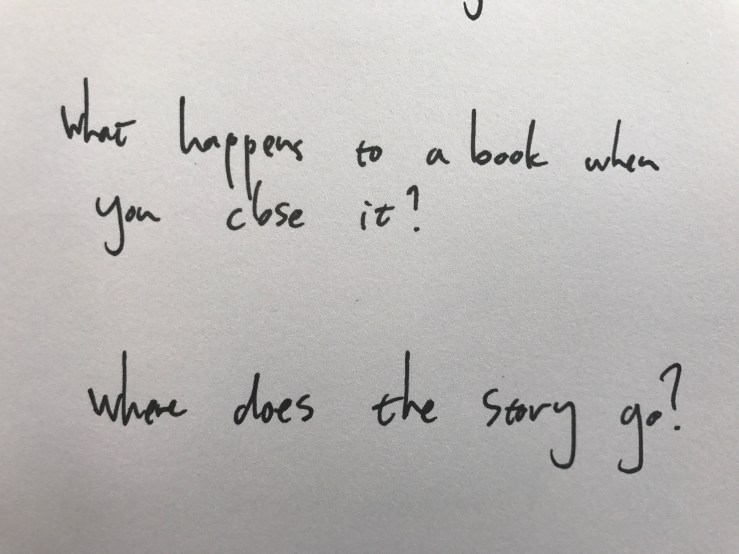 What happens to a book when
you close it?
where does the story go?